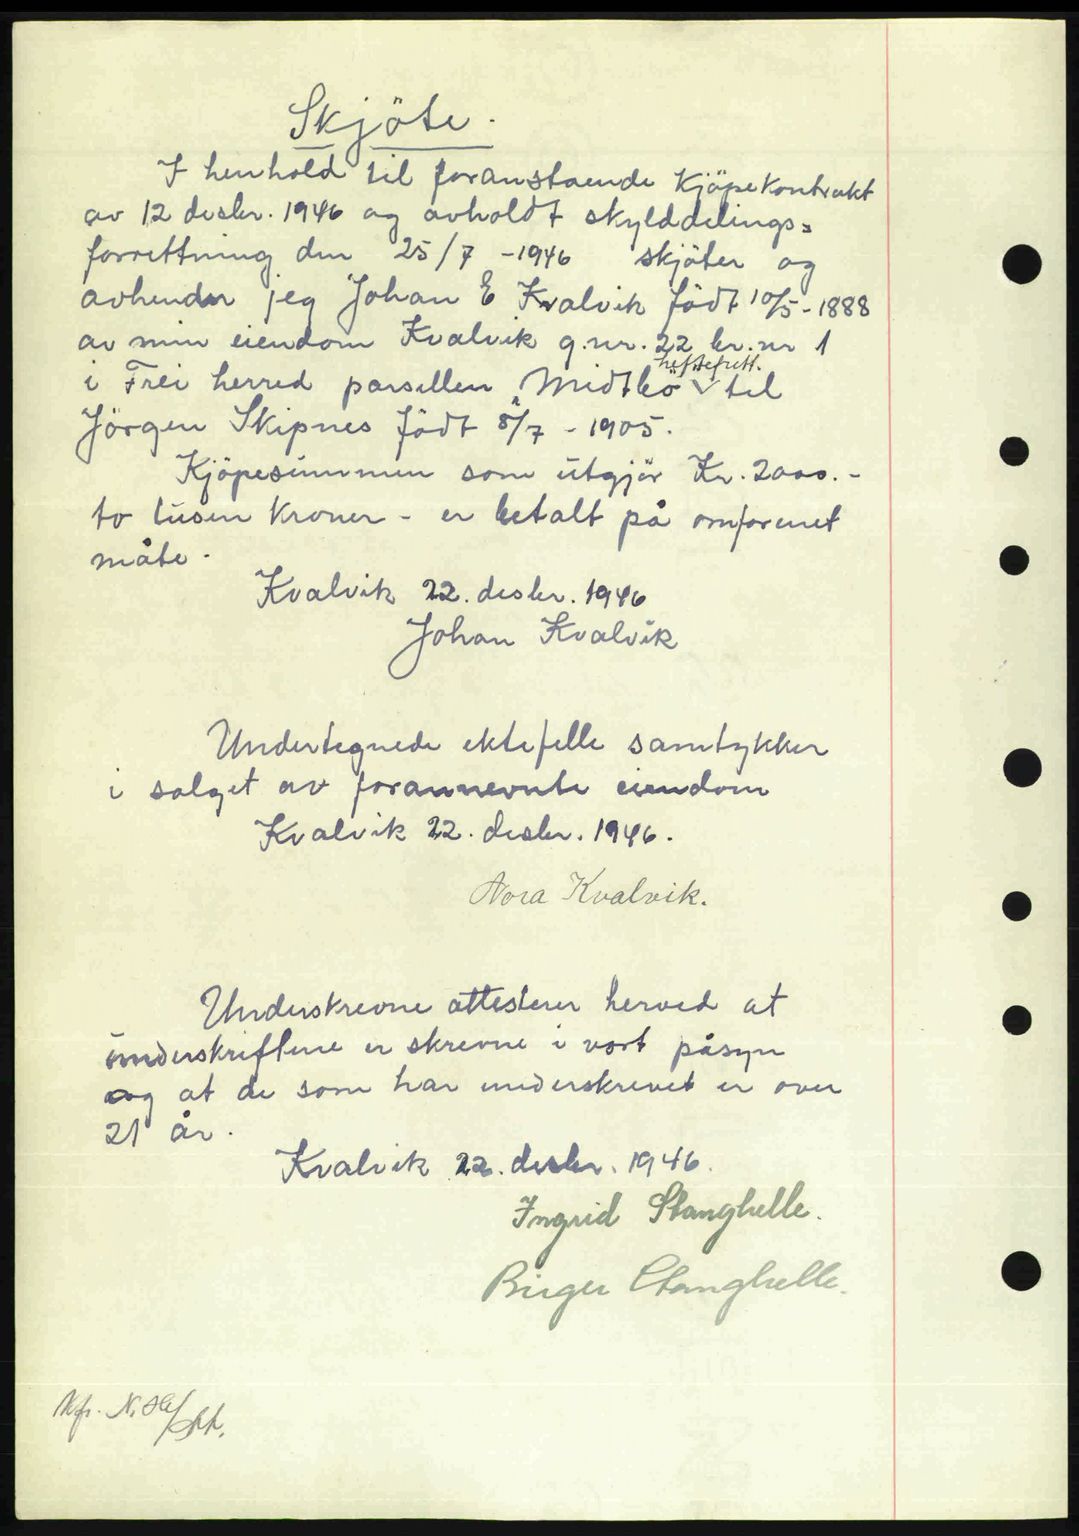 Skjöte.
I henhold til foranstaende Kjöpekontrakt
av 12 desbr. 1946 og avholdt skylddelings=
forrettning den 25/7 - 1946 skjöter og
avhender jeg Johan E Kvalvik födt 10/5 - 1888
av min eiendom Kvalvik g.nr. 22 br. nr 1
heftefritt.
i Frei herred parsellen "Midtbö" til
Jörgen Skipnes födt 8/7 - 1905.
Kjöpesummen som utgjör Kr. 2000.-
to tusen kroner - er betalt på omforenet
måte.
Kvalvik 22. desbr. 1946
Johan Kvalvik
Undertegnede ektefelle samtykker
i salget av forannevnte eiendom
Kvalvik 22. desbr. 1946.
Nora Kvalvik.
Underskrevne attesterer herved at
underskriftene er skrevne i vort påsyn
og at de som har underskrevet er over
21 år.
Kvalvik 22. desbr. 1946.
Ingrid Stanghelle.
Birger Stanghelle.